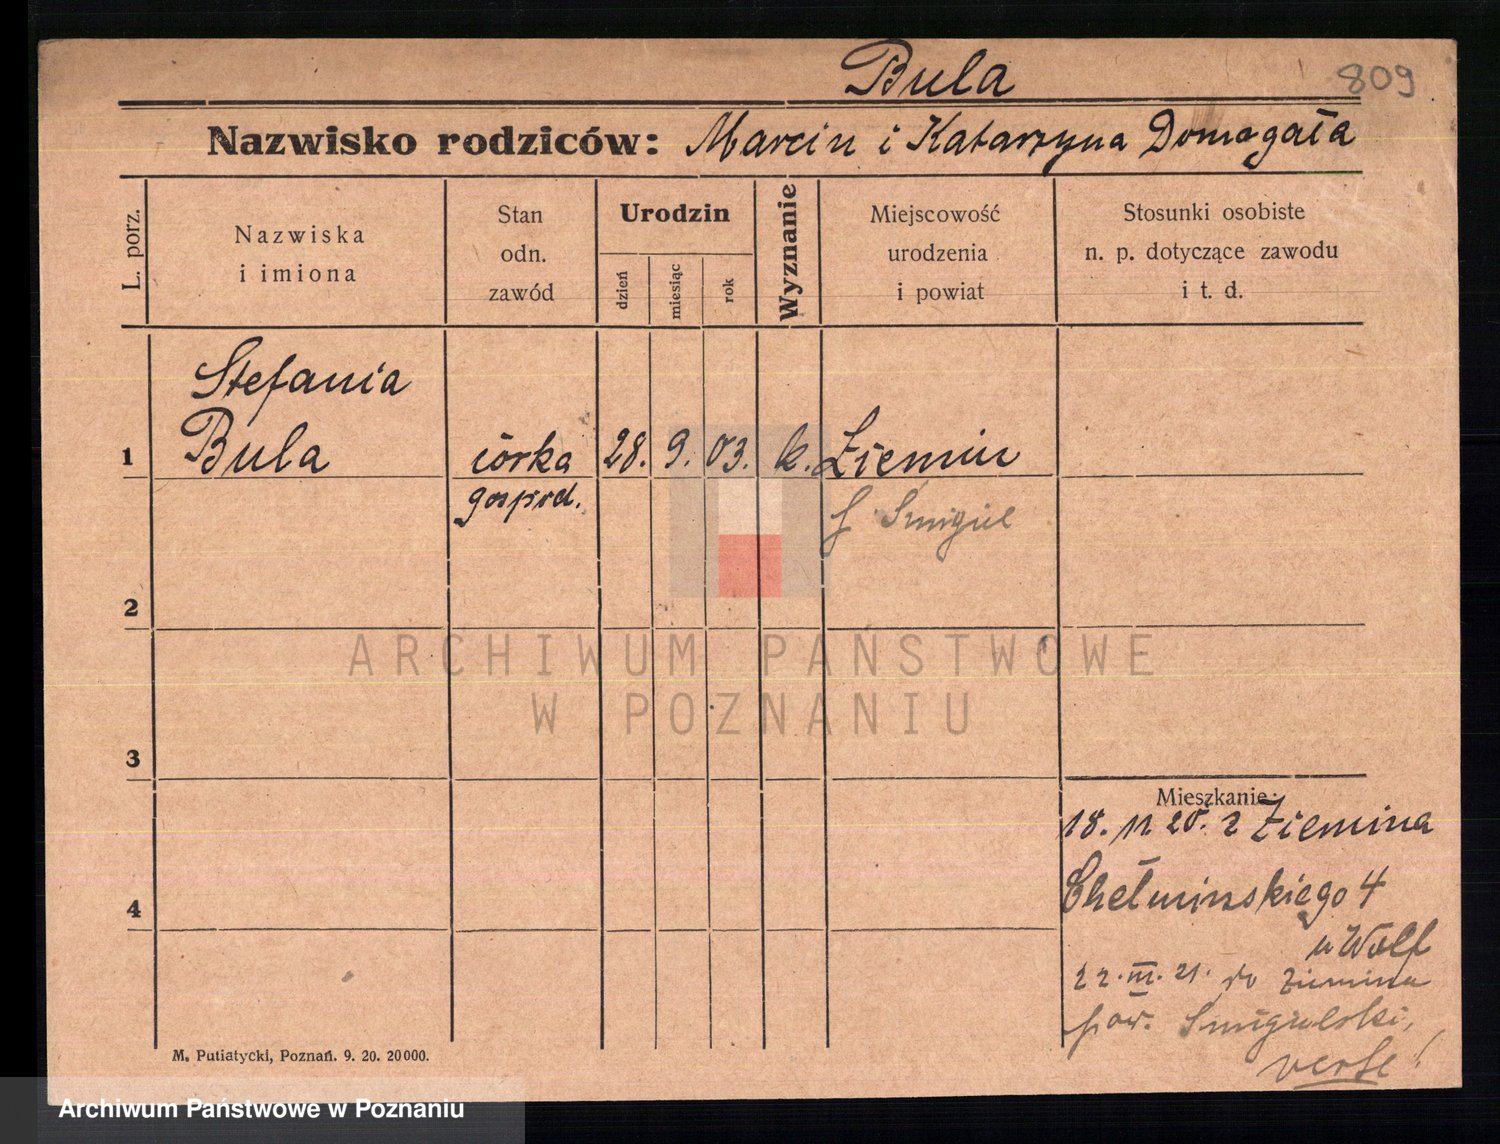 Bula
809
Nazwisko rodziców: Marcin i Katarzyna Domagała
L. porz.
Nazwiska
i imiona
Stan
odn.
zawód
Urodzin
dzień
miesiąc
rok
Wyznanie
Miejscowość
urodzenia
i powiat
Stosunki osobiste
n. p. dotyczące zawodu
i t. d.
1
Stefania
Bula
córka
gospod.
28. 9. 03.
k.
Ziemin
Smigiel
2
ARCHIWUM PAŃSTWOWE
W POZNANIU
3
4
Mieszkanie:
18. 11 20. z Ziemina
Chełmińskiego 4
u Wolf
22. III. 21. do Ziemina
pow. Smigielski,
verte!
M. Putiatycki, Poznań. 9. 20. 20000.
Archiwum Państwowe w Poznaniu